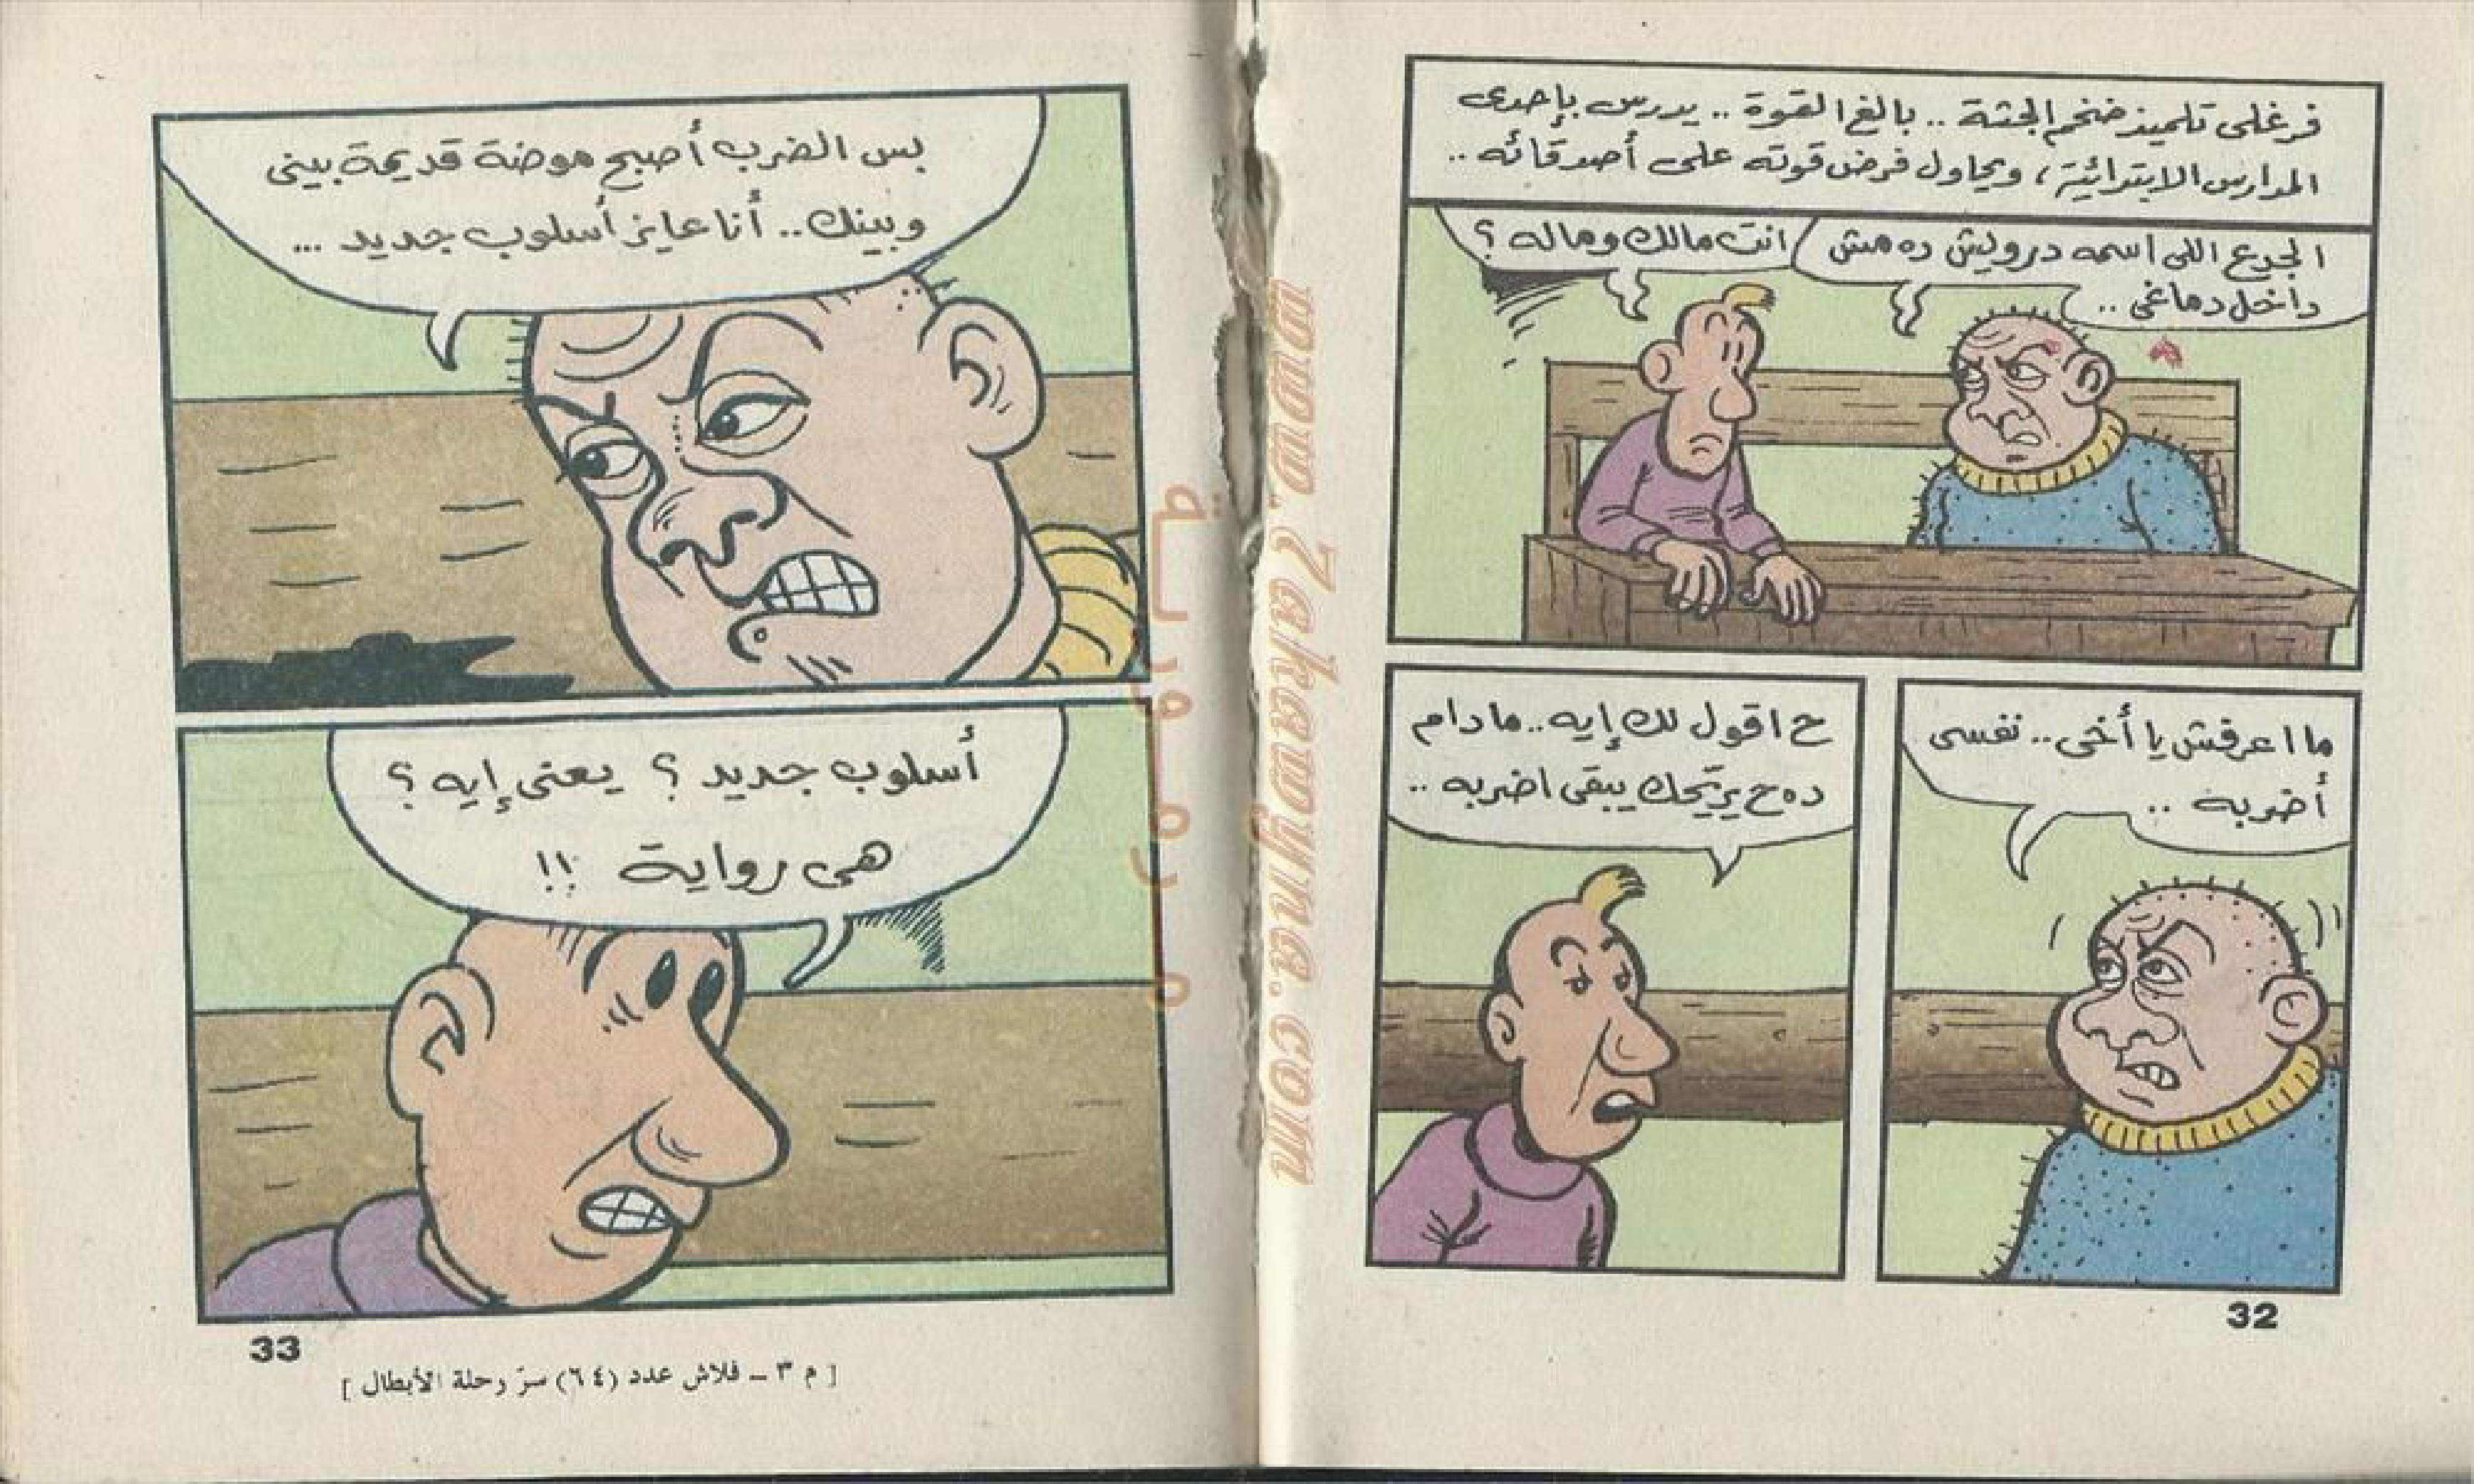 فرغلى تلميذ ضخم الجثة .. بالغ القوة .. يدرس بإحدى
المدارس الابتدائية ، ويحاول فرض قوته على أصدقائه ..
الجدع اللى اسمه درويش ده مش
داخل دماغى ..
انت مالك وماله ؟
ما اعرفش يا أخى .. نفسى
أضربه ..
ح اقول لك إيه .. مادام
ده ح يريّحك يبقى اضربه ..
32
بس الضرب أصبح موضة قديمة بينى
وبينك .. أنا عايز أسلوب جديد ...
أسلوب جديد ؟ يعنى إيه ؟
هى رواية !!
33
[ م ٣ ـ فلاش عدد (٦٤) سرّ رحلة الأبطال ]
www.Zakawyna.com